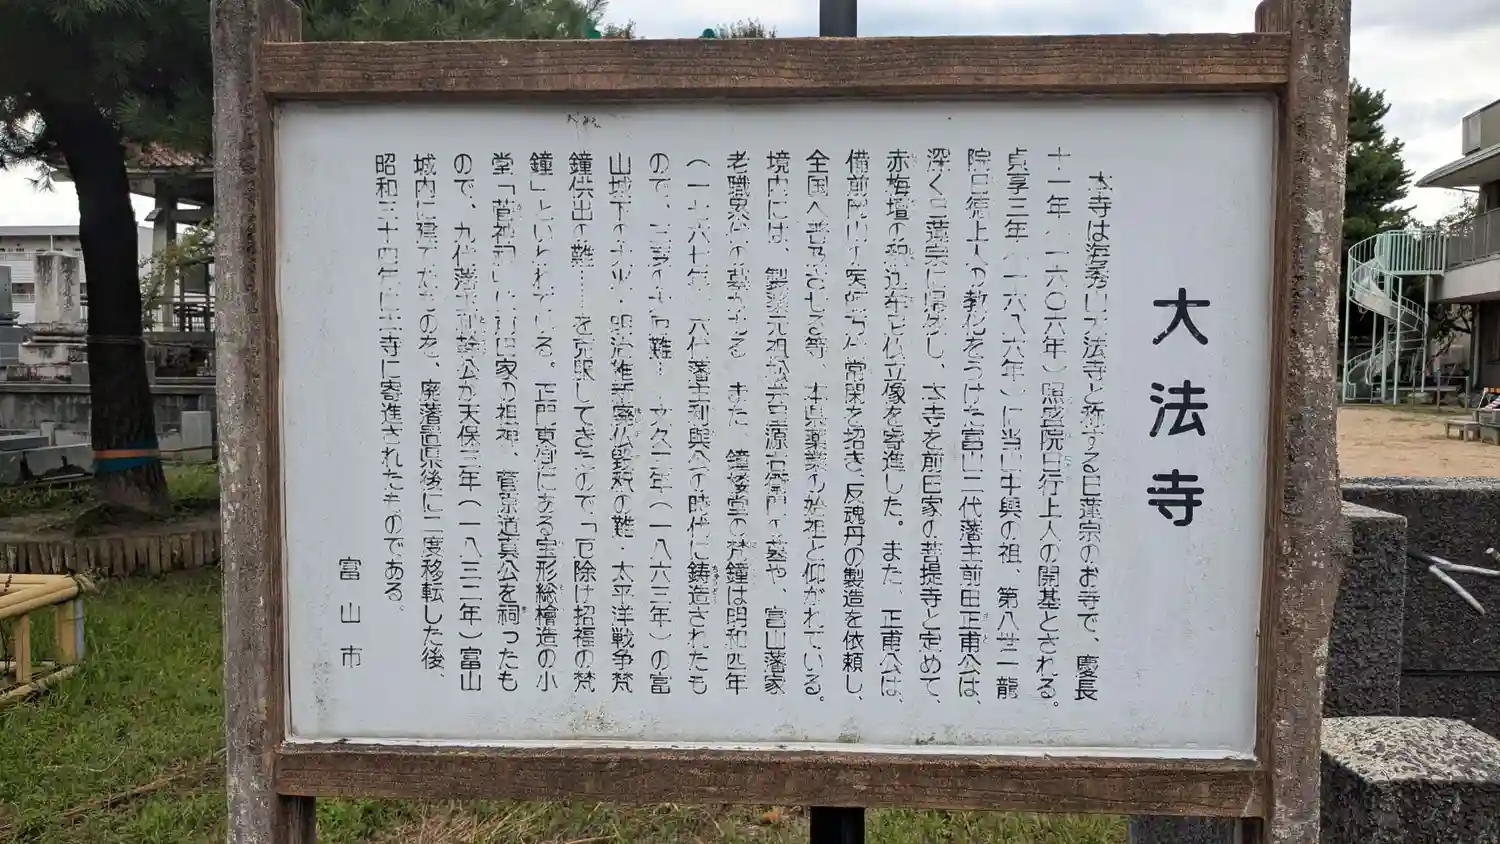 大法寺
本寺は海秀山大法寺と称する日蓮宗のお寺で、慶長
十一年(一六〇六年)照盛院日行上人の開基とされる。
貞享三年(一六八六年)に当山中興の祖、第八世一龍
院日徳上人の教化をうけた富山二代藩主前田正甫公は、
深く日蓮宗に帰依し、本寺を前田家の菩提寺と定めて、
赤梅壇の釈迦牟尼仏立像を寄進した。また、正甫公は、
備前岡山の医師万代常閑を招き反魂丹の製造を依頼し、
全国へ普及させる等、本県薬業の始祖と仰がれている。
境内には、製薬元祖松井屋源右衛門の墓や、富山藩家
老職累代の墓がある。また、鐘楼堂の梵鐘は明和四年
(一七六七年)六代藩主利與公の時代に鋳造されたも
ので、 文久三年(一八六三年)の富
山城下の大火・明治維新廃仏毀釈の難・太平洋戦争梵
鐘供出の難……を克服してきたので「厄除け招福の梵
鐘」といわれている。正門東側にある宝形総檜造の小
堂「菅神祠」は前田家の祖神、菅原道真公を祠ったも
ので、九代藩主利幹公が天保三年(一八三二年)富山
城内に建てたものを、廃藩置県後に二度移転した後、
昭和三十四年に本寺に寄進されたものである。
富山市